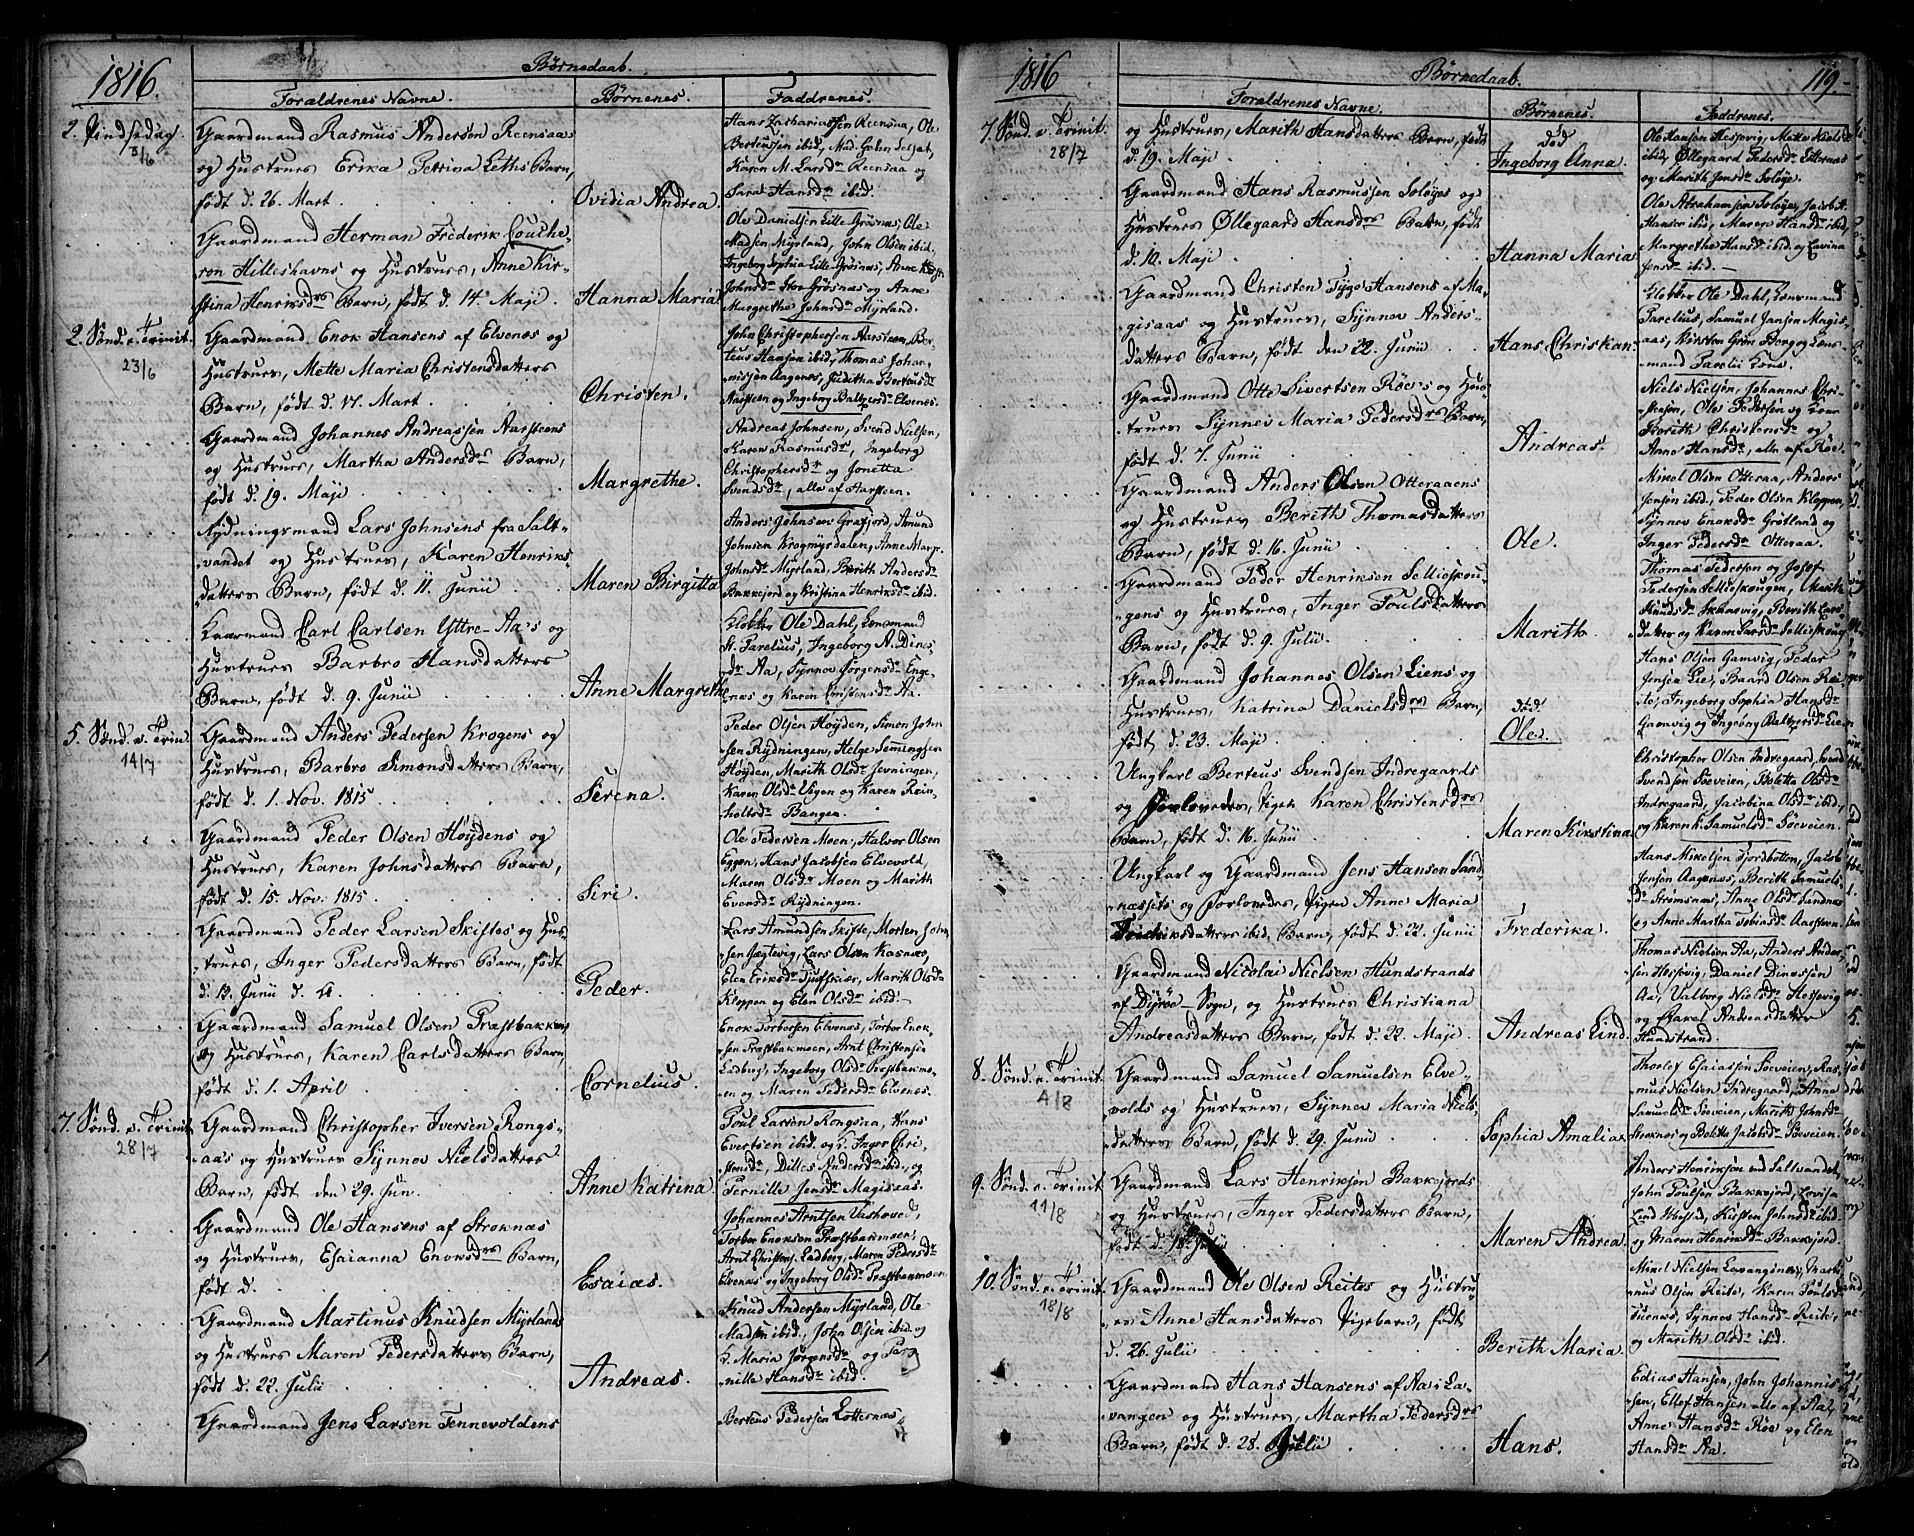 1816.
Børnedaab.
Forældrenes Navne.
Børnenes.
Faddrenes.
2. Pindsedag.
3/6
Gaardmand Rasmus Andersøn Reensaas
og Hustrues Erika Petrina Leths Barn,
født d. 26. Mart.
Ovidia Andrea.
Hans Zachariassen Reensaa, Ole
Bertensen ibid, Mad. Gohn
Karen M. Larsdr. Reensaa og
Sara Hansdr. ibid.
Gaardmand Herman Frederik Couche-
ron Hilleshavns og Hustrues, Anne Kir-
stina Henriksdrs Barn, født d. 14 Maji.
Hanna Maria
Ole Danielsen Lille-Grøsnæs, Ole
Madsen Myrland, John Olsen ibid
Ingeborg Sophia Lille-Grøsnæs, Anne
Johnsdr. Stor Grøsnæs og Anne
Margrethe Johnsdr. Myrland.
2. Sønd. e. Trinit.
23/6
Gaardmand Enok Hansens af Elvenes og
Hustrues, Mette Maria Christensdatters
Barn, født d. 17. Mart.
Christen.
John Christophersen Aarsteen, Ber-
teus Hansen ibid, Thomas Johan-
nissen Aagenæs, Juditha Berteusdr
Aarsteen og Ingeborg Baltzersdr Elvenes.
Gaardmand Johannes Andreassen Aarsteens
og Hustrues, Martha Andersdrs Barn,
født d. 19. Maji
Margrethe.
Andreas Johnsen, Svend Nielsen,
Karen Rasmusdr, Ingeborg
Christophersdr og Jonetta
Svendsdr, alle af Aarsteen.
Rydningsmand Lars Johnsens fra Salt-
vandet og Hustrues, Karen Henriks-
datters Barn, født d. 11. Junii
Maren Birgitta
Anders Johnsen Grafjord, Amund
Johnsen Krogmyrdalen, Anne Marg.
Johnsdr. Myrland, Berith Andersdr
Bakkejord og Kristina Henriksdr ibid.
Gaarmand Carl Carlsen Yttre-Aa's og
Hustrues Barbro Hansdatters
Barn, født d. 9. Junii
Anne Margrethe
Klokker Ole Dahl, Lensmand
H. Parelius, Ingeborg A. Dines-
dr Aa, Synnev Jørgensdr Enge-
næs og Karen Cristensdr Aa.
5. Sønd. e. Trin.
14/7
Gaardmand Anders Pedersen Krogens og
Hustrues, Barbro Simonsdatters Barn,
født d. 1. Nov. 1815
Serena.
Peder Olsen Høyden, Simon John-
sen Rydningen, Helge Semingsen
Høyden, Marith Olsdr Jevningen,
Karen Olsdr Vigen og Karen Rein-
holtsdr Bangen.
Gaardmand Peder Olsen Høydens og
Hustrues, Karen Johnsdatters Barn,
født d. 15. Nov. 1815
Siri.
Ole Pedersen Moen, Halvor Olsen
Eggen, Hans Jacobsen Elvevold,
Maren Olsdr Moen og Marith
Evensdr Rydningen.
Gaardmand Peder Larsen Skiftes og Hus-
trues, Inger Pedersdatters Barn, født
d. 13. Junii d. A.
Peder.
Lars Amundsen Skifte, Morten John-
sen Jægtevig, Lars Olsen Kasnæs,
Elen Eriksdr Tjufskiær, Marith Olsdr
Kleppen og Elen Olsdr ibid.
Gaardmand Samuel Olsen Præstbakkens
og Hustrues, Karen Carlsdatters Barn,
født d. 1. April
Cornelius.
Enok Torbersen Elvenæs, Torber Enok-
sen Præstbakmoen, Arnt Christensen
Ladberg, Ingeborg Olsdr Præstbakmo-
en og Maren Pedersdr Elvenes.
7. Sønd. e. Trinit.
28/7
Gaardmand Christopher Iversen Rongs-
aas og Hustrues Synnev Nielsdatters
Barn, født den 29. Jun.
Anne Katrina.
Poul Larsen Rongsaa, Hans
Evertsen ibid og H. Inger Chri-
stensdr, Dilles Andersdr ibid., og
Pernille Jensdr Magisaas.
Gaardmand Ole Hansens af Stroknæs
og Hustrues, Esaianna Enoksdrs Barn,
født d.
Esaias.
Johannes Arntsen Vashoved,
Torber Enoksen Præstbakmoen,
Arnt Christens. Ladberg, Maren Pedersdr
Elvenæs og Ingeborg Olsdr Præstbakmoen
Gaardmand Martinus Knudsen Myrlands
og Hustrues Maren Pedersdatters Barn,
født d. 22. Julii
Andreas.
Knud Andersen Myrland, Ole
Madsen ibid., John Olsen ibid og
H. Maria Jørgensdr og Per-
nille Hansdr ibid.
Gaardmand Jens Larsen Tennevoldens
Berteus Pedersen Lotternæs
1816
Børnedaab.
119.
Forældrenes Navne.
Børnenes.
Faddrenes.
7. Sønd. e. Trinit.
28/7
og Hustrues, Marith Hansdatters Barn, født
d. 19. Maji
død
Ingeborg Anna.
Ole Hansen Hessvig, Mette Nielsdr
ibid, Øllegaard Pedersdr Lotternæs
og Marith Jensdr Soløye.
Gaardmand Hans Rasmussen Soløyes og
Hustrues Øllegaard Hansdrs Barn, født
d. 10. Maji
Hanna Maria
Ole Abrahamsen Soløye, Jacob A.
Hansen ibid, Maren Hansdr ibid,
Margrethe Hansdr ibid. og Lovina
Jensdr ibid.
Gaardmand Christen Tyge Hansens af Ma-
gisaas og Hustrues, Synnev Anders-
datters Barn, født den 22. Junii
Hans Christian.
Klokker Ole Dahl, Lensmand
Parelius, Samuel Jansen Magis-
aas, Kirsten Grøn Berg og Lens-
mand Parelii Kone.
Gaardmand Otte Sivertsen Røe's og Hus-
trues Synnev Maria Pedersdrs Barn,
født d. 7. Junii
Andreas.
Niels Nielsen, Johannes Chri-
stensen, Ole Pedersen og Kone
Berith Christensdr og
Anne Hansdr, alle af Røe.
Gaardmand Anders Olsen Otteraaens
og Hustrues Berith Thomasdatters
Barn, født d. 16. Junii
Ole.
Mikel Olsen Otteraa, Anders
Jensen ibid, Peder Olsen Kleppen,
Synnev Enoksdr Grøtland og
Inger Pedersdr Otteraa.
Gaardmand Peder Henriksen Sellieskou-
gens og Hustrues, Inger Poulsdatters
Barn, født d. 9. Julii.
Marith.
Thomas Pedersen og Josef
Pedersen Sellieskougen, Marith
Knudsdr, Berith Lars-
datter og Karen Larsdr Sellieskoug
Gaardmand Johannes Olsen Liens og
Hustrues, Katrina Danielsdrs Barn,
født d. 23. Maji
død
Ole.
Hans Olsen Gamvig, Peder
Jensen Lie, Baard Olsen Rei-
te, Ingeborg Sophia Hansdr
Gamvig og Ingeborg Baltzersdr Lien
Ungkarl Berteus Svendsen Indregaards
og Forlovedes, Pigen Karen Christensdrs
Barn, født d. 16. Junii
Maren Kirstina
Christopher Olsen Indregaard, Svend
Svendsen Søeveien, Boletta Olsdr
Indregaard, Jacobina Olsdr ibid.,
og Karen K. Samuelsdr Søeveien.
Ungkarl og Gaardmand Jens Hansen Sand-
næssets og Forlovedes, Pigen Anne Maria
Frideriksdatters ibid, Barn, født d. 22. Junii
Frederika.
Hans Mikelsen Fjordbotten, Jacob
Jensen Aagenæs, Berith Samuels-
dr Strømsnæs, Anne Olsdr Sandnes
og Anne Martha Tobiasdr Aarsteen
Gaardmand Nicolai Nielsen Hundstrands
af Dyrøe-Sogn, og Hustrues Christiana
Andreasdatters Barn, født d. 22. Maji
Andreas Lind.
Thomas Nielsen Aa, Anders Ander-
sen Hessvig, Daniel Dinessen
Aa, Valborg Nielsdr Hessvig
og Rakel Andreasdatter
Hundstrand.
8. Sønd. e. Trinit.
4/8
Gaardmand Samuel Samuelsen Elve-
volds og Hustrues, Synnev Maria Niels-
datters Barn, født d. 29. Junii
Sophia Amalia
Thorlef Esaiassen Søeveien, Ras-
mus Nielsen Indregaard, Anne
Samuelsdr Søeveien, Marith Johnsdr
Stroknes og Bolette Jacobsdr Søeveien.
9. Sønd. e. Trinit
11/8
Gaardmand Lars Henriksen Bakkejords
og Hustrues, Inger Pedersdatters Barn,
født d. 18. Julii
Maren Andrea.
Anders Henriksen ved Saltvandet,
John Poulsen Bakkejord, Lovisa
Lind Ibestad, Kirsten Johnsdr ibid.
og Maren Henriksdr Bakkejord.
10. Sønd. e. Trinit.
18/8
Gaardmand Ole Olsen Reites og Hustru-
es Anne Hansdatters Pigebarn, født
d. 26. Julii
Berith Maria.
Mikel Nielsen Lavangsnæs, Marti-
nus Olsen Reite, Karen Poulsdr
Furnes, Synnev Hansdr Reite,
og Marith Olsdr ibid.
Gaardmand Hans Hansens af Aa i La-
vangen og Hustrues, Martha Pedersdrs
Barn, født d. 28. Julii
Hans.
Edias Hansen, John Johannis-
sen, Ellef Hansen alle af Aa,
Anne Hansdr Røe og Elen
Hansdr Aa.